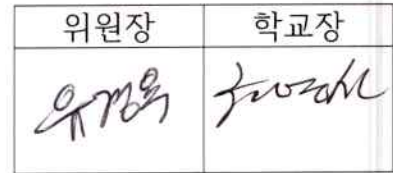 위원장 학교장
유경옥